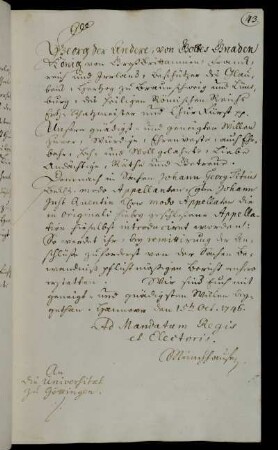 43.
George der Andere, von Gottes Gnaden
König von Großbritannien, Franck-
reich und Irrland, Beschützer des Glau-
bens, Hertzog zu Braunschweig und Lüne-
burg, des Heiligen Römischen Reichs
Ertz-Schatzmeister und Churfürst pp.
Unsern gnädigst- und geneigten Willen
zuvor, Würdige, Ehrenveste, auch Ehr-
bahre, Hoch- und Wohlgelahrte, Liebe
Andächtige, Räthe und Getreue.
Demnach in Sachen Johann Georg
modo Appellanten, Johann
Just Quentin modo Appellaten die
in originali hiebey geschlossene Appella-
tion hieselbst introduciret worden:
So werdet ihr, bey remittirung der An-
schlüße zuforderst von der Sachen Be-
wandniß pflichtmäßigen Bericht anhero
erstatten. Wir sind euch mit
geneigt- und gnädigstem Willen bey-
gethan. Hannover den 15ten Oct. 1746.
Ad Mandatum Regis
et Electoris.
Münchhausen
An
die Universität
zu Göttingen.